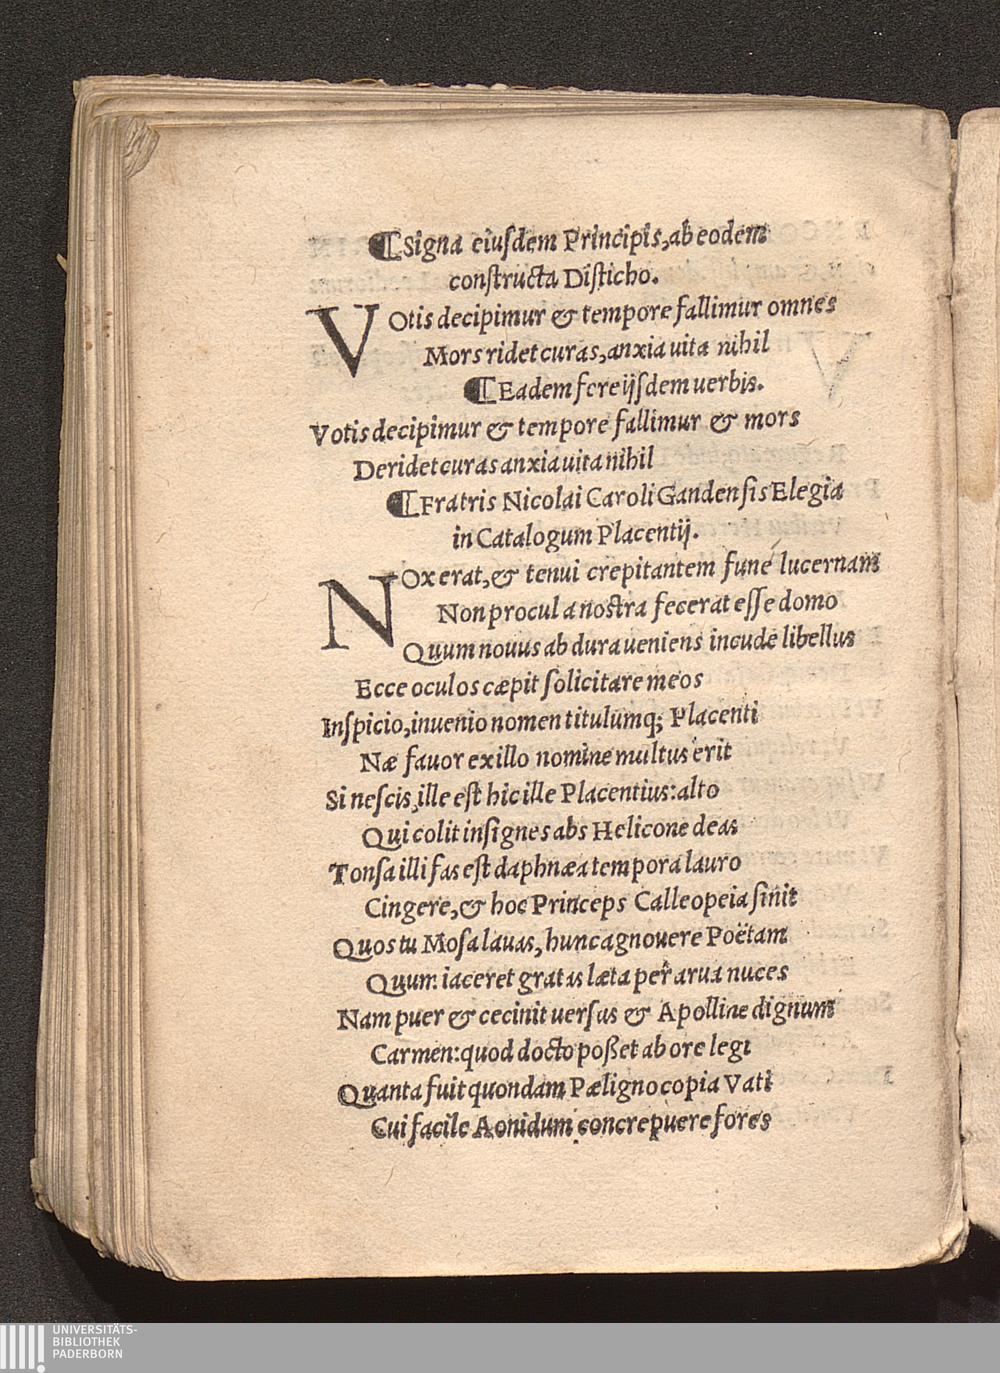 ¶Signa eiuſdem Principis, ab eodem
conſtructa Diſticho.
VOtis decipimur & tempore fallimur omnes
Mors ridet curas, anxia uita nihil
¶Eadem fere ijſdem uerbis.
Votis decipimur & tempore fallimur & mors
Deridet curas anxia uita nihil
¶Fratris Nicolai Caroli Gandenſis Elegia
in Catalogum Placentij.
NOx erat, & tenui crepitantem fune lucernam
Non procul a noſtra fecerat eſſe domo
Quum nouus ab dura ueniens incude libellus
Ecce oculos cæpit ſolicitare meos
Inſpicio, inuenio nomen titulumq; Placenti
Næ fauor ex illo nomine multus erit
Si neſcis, ille eſt hic ille Placentius: alto
Qui colit inſignes abs Helicone deas
Tonſa illi fas eſt daphnæa tempora lauro
Cingere, & hoc Princeps Calleopeia ſinit
Quos tu Moſa lauas, hunc agnouere Poëtam
Quum iaceret gratas læta per arua nuces
Nam puer & cecinit uerſus & Apolline dignum
Carmen: quod docto poßet ab ore legi
Quanta fuit quondam Pæligno copia Vati
Cui facile Aonidum concrepuere fores
UNIVERSITÄTS-
BIBLIOTHEK
PADERBORN